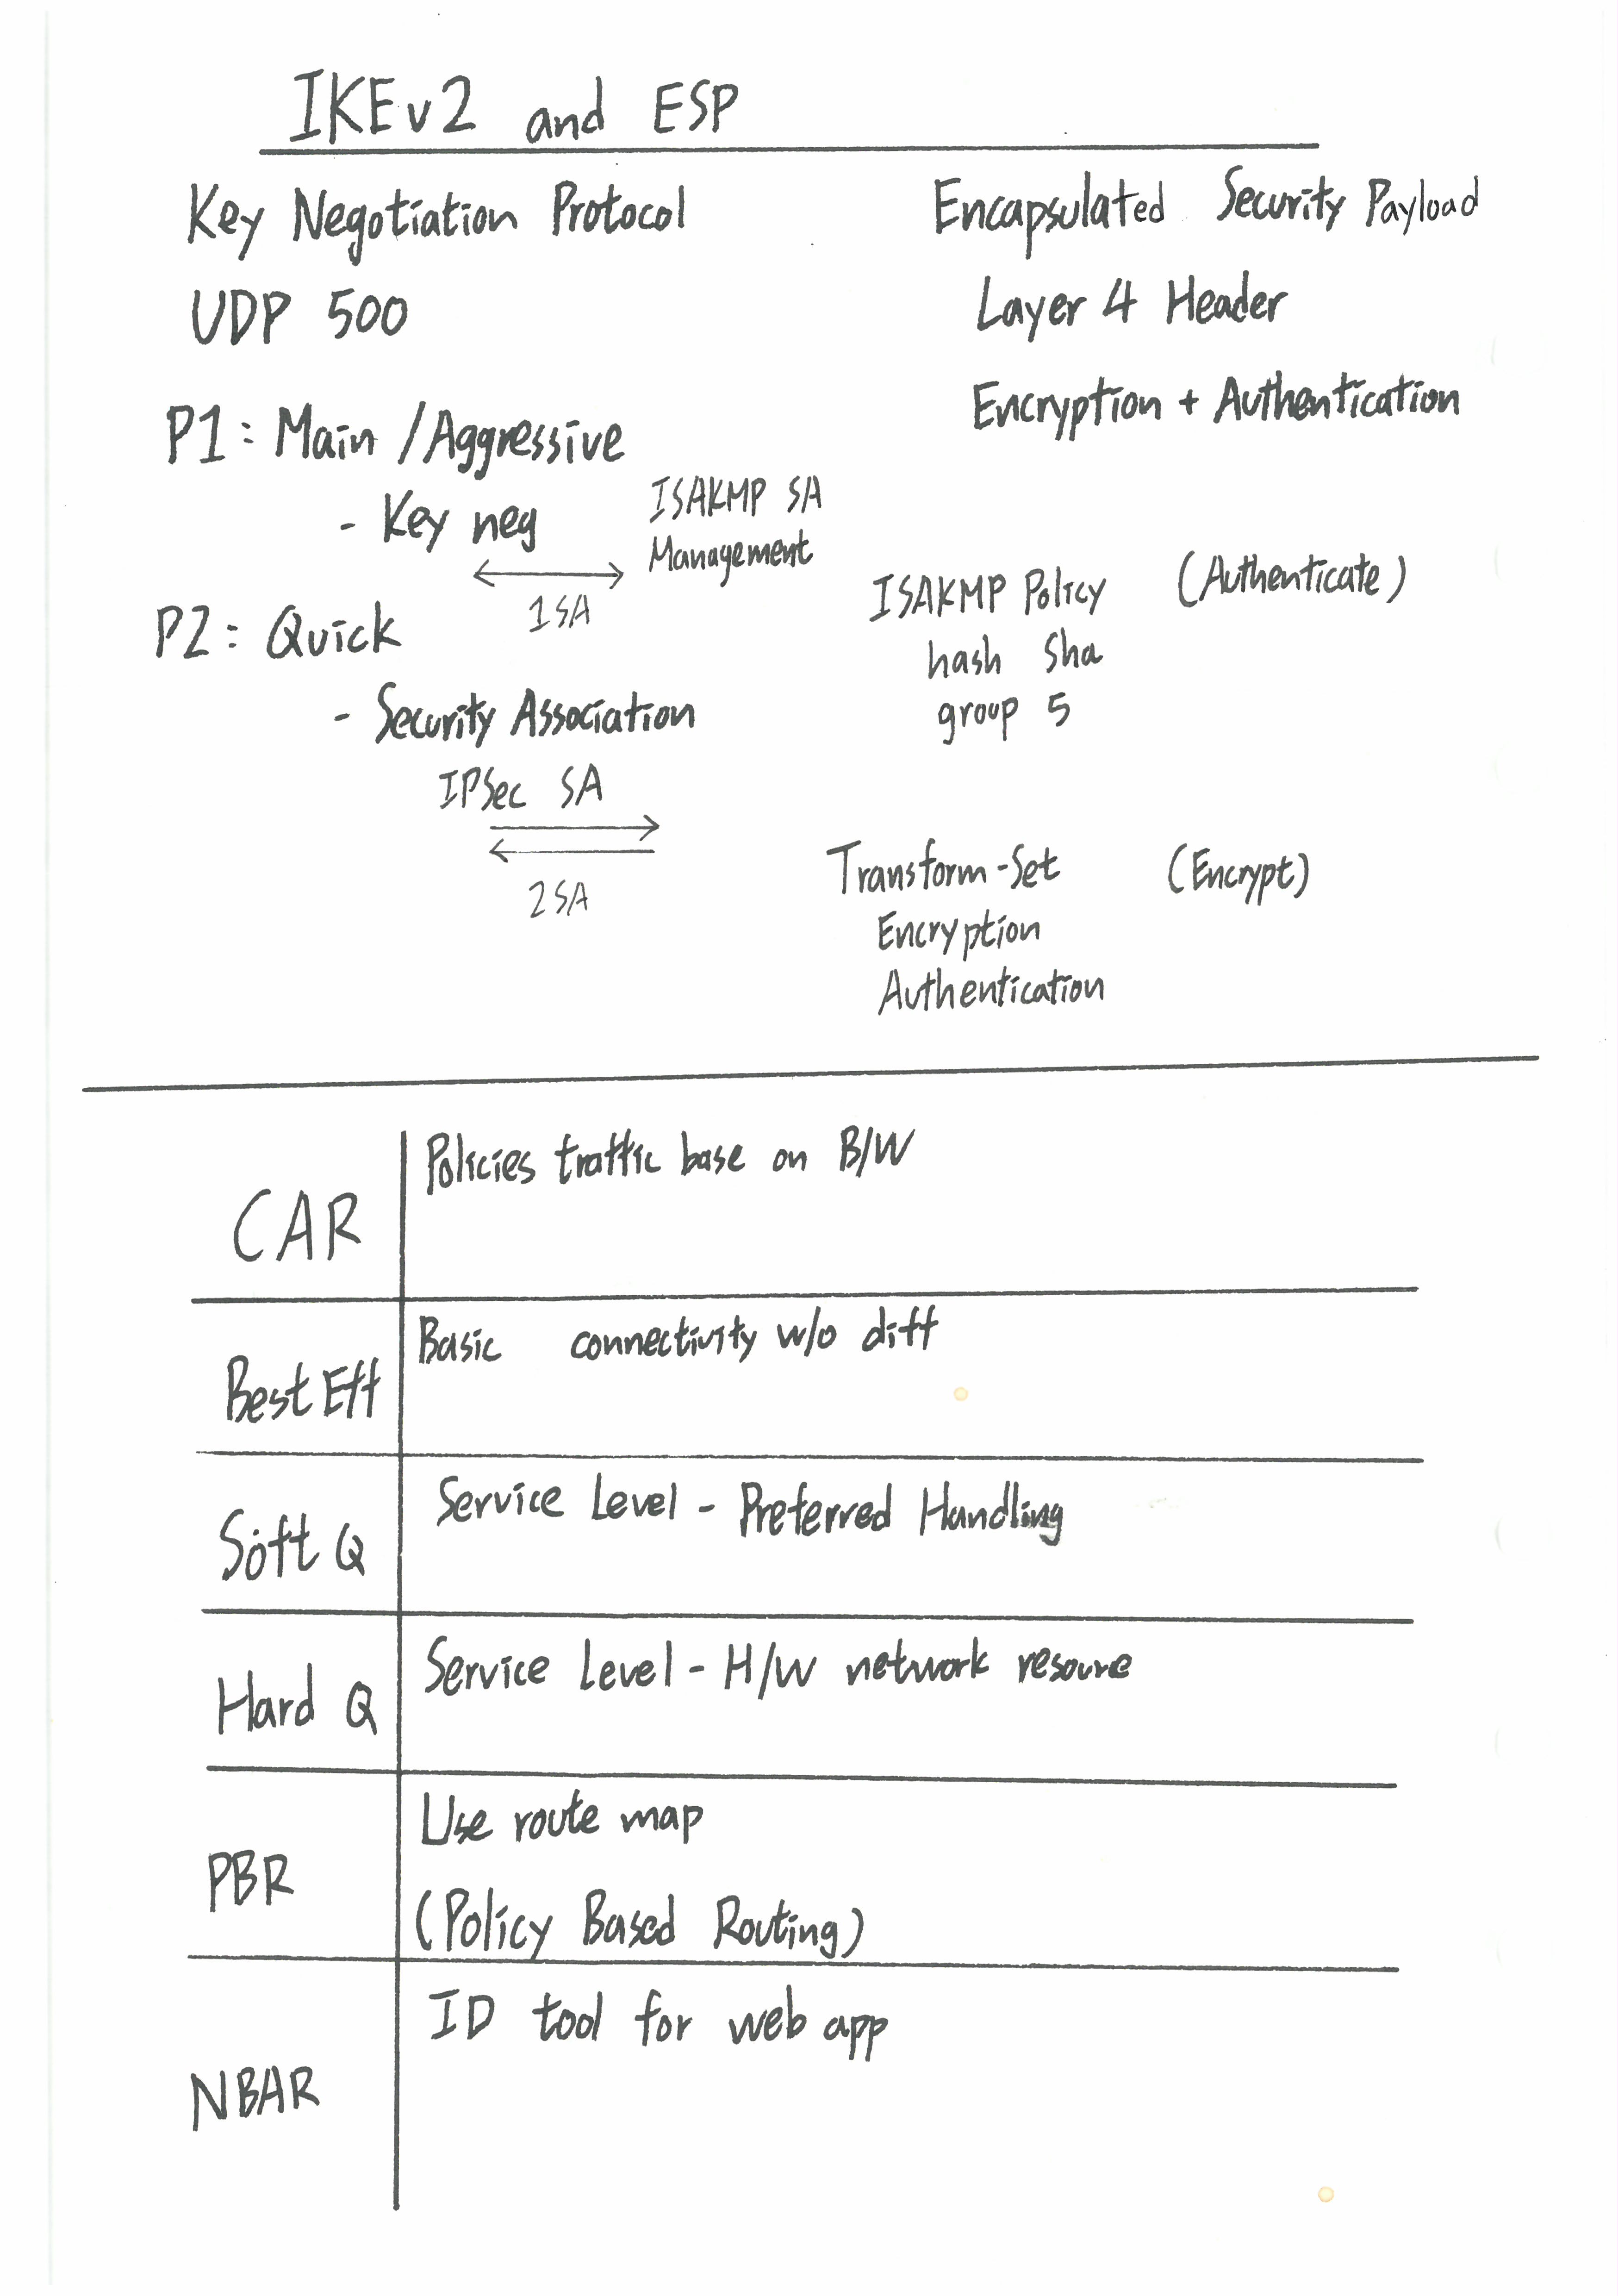 IKEv2 and ESP
Key Negotiation Protocol
UDP 500
P1: Main / Aggressive
- Key neg
ISAKMP SA
Management
1SA
P2: Quick
- Security Association
IPSec SA
2SA
Encapsulated Security Payload
Layer 4 Header
Encryption + Authentication
ISAKMP Policy (Authenticate)
hash sha
group 5
Transform-Set (Encrypt)
Encryption
Authentication
CAR
Policies traffic base on B/W
Best Eff
Basic connectivity w/o diff
Soft Q
Service Level - Preferred Handling
Hard Q
Service Level - H/W network resoure
PBR
Use route map
(Policy Based Routing)
NBAR
ID tool for web app